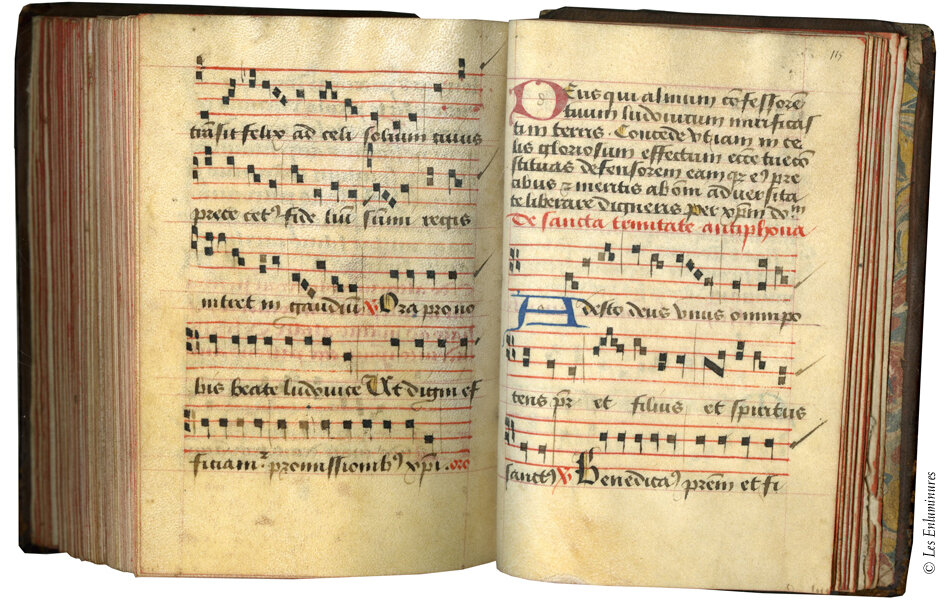 transit felix ad celi solium ciuus
prece cet⁹ fide liū sūmi regis
intret in gaudiū ℣ Ora pro no
bis beate ludouice Ut digni ef
ficiam² promissionib⁹ xp̄i . oro
115
Deus qui almum cōfessorē
tuum ludouicum mirificas
ti in terris . Concede vt iam in ce
lis gloriosum effectum ecce tue cō
stituas defensorem eam q̄z ei⁹ pre
cibus ⁊ meritis ab om̄ aduersita
te liberare digneris per xp̄m do^m
De sancta trinitate antiphona
Adesto deus vnus omnipo
tens pr̄ et filius et spiritus
sanct⁹ ℣ Benedicam⁹ prēm et fi
© Les Enluminures